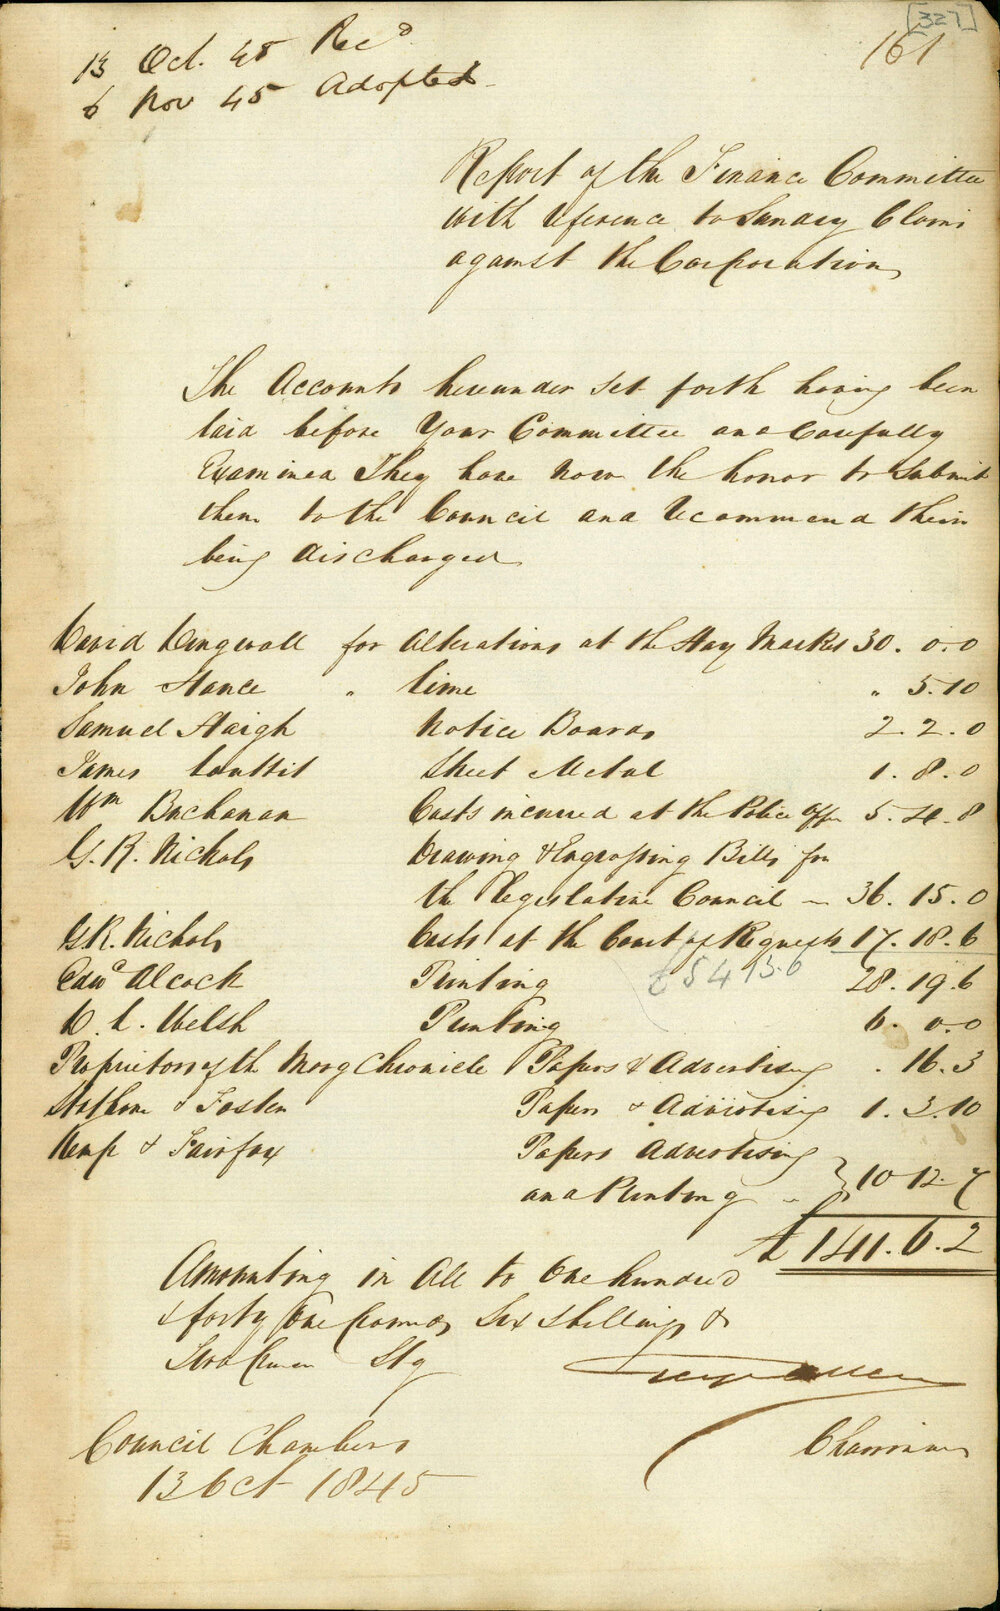 [327]
161
13 Oct. 45 Recd
6 Nov 45 Adopted
Report of the Finance Committee
with reference to Sundry Claims
against the Corporation
The Accounts hereunder set forth having been
laid before Your Committee and Carefully
Examined They have now the honor to Submit
them to the Council and recommend their
being discharged
David Dingwall for Alterations at the Hay Market 30. 0. 0
John Hance " lime " 5. 10
Samuel Haigh Notice Boards 2. 2. 0
James Sheet Metal 1. 8. 0
Wm Buchanan Costs incurred at the Police Offe 5. 4. 8
G. R. Nichols Drawing & Engrossing Bills for
the Legislative Council 36. 15. 0
G R. Nichols Costs at the Court of Requests 17. 18. 6
£54 13. 6
Edwd Alcock Printing 28. 19. 6
D. L. Welsh Printing 6. 0. 0
Proprietors of the Morng Chronicle Papers & Advertising . 16. 3
& Foster Papers & Advertising 1. 3. 10
Kemp & Fairfax Papers Advertising
and Printing } 10 12. 7
£ 141. 6. 2
Amounting in All to One hundred
& forty One pounds Six Shillings &
Two Pence Stg
Chairman
Council Chambers
13 Oct 1845